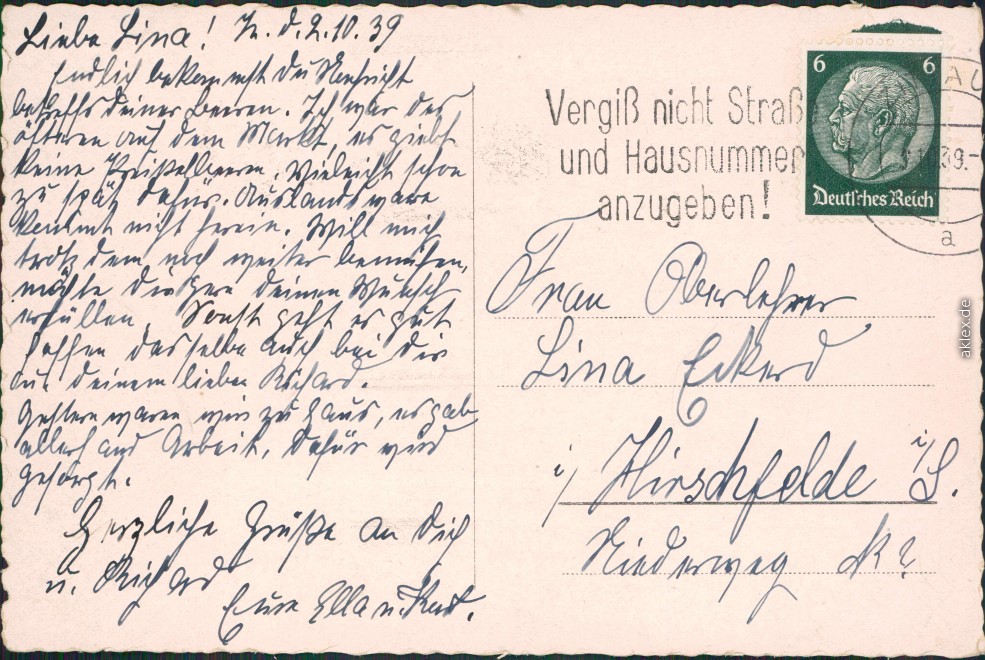 Liebe Lina! Zi. d. 2.10.39
Endlich bekommst Du Nachricht
betreffs deiner Beeren. Ich war des
öfteren auf dem Markt, es giebt
keine Preiselbeeren. Vielleicht schon
zu spät dafür. Auslandsware
kommt nicht herein. Will mich
trotzdem noch weiter bemühen,
möchte dir gern deinen Wunsch
erfüllen. Sonst geht es gut
hoffen dasselbe auch bei Dir
und deinem lieben Richard.
Gestern waren wir zu Haus, es gab
allerhand Arbeit. Dafür wird
gesorgt.
Herzliche Grüße an Dich
u. Richard
Eure Ella u. Kurt.
Vergiß nicht Straß
und Hausnummer
anzugeben!
6 6
Deutsches Reich
AU
39.-
a
Frau Oberlehrer
Lina Eckerd
i/ Hirschfelde i/S.
Niederweg N?
aklex.de